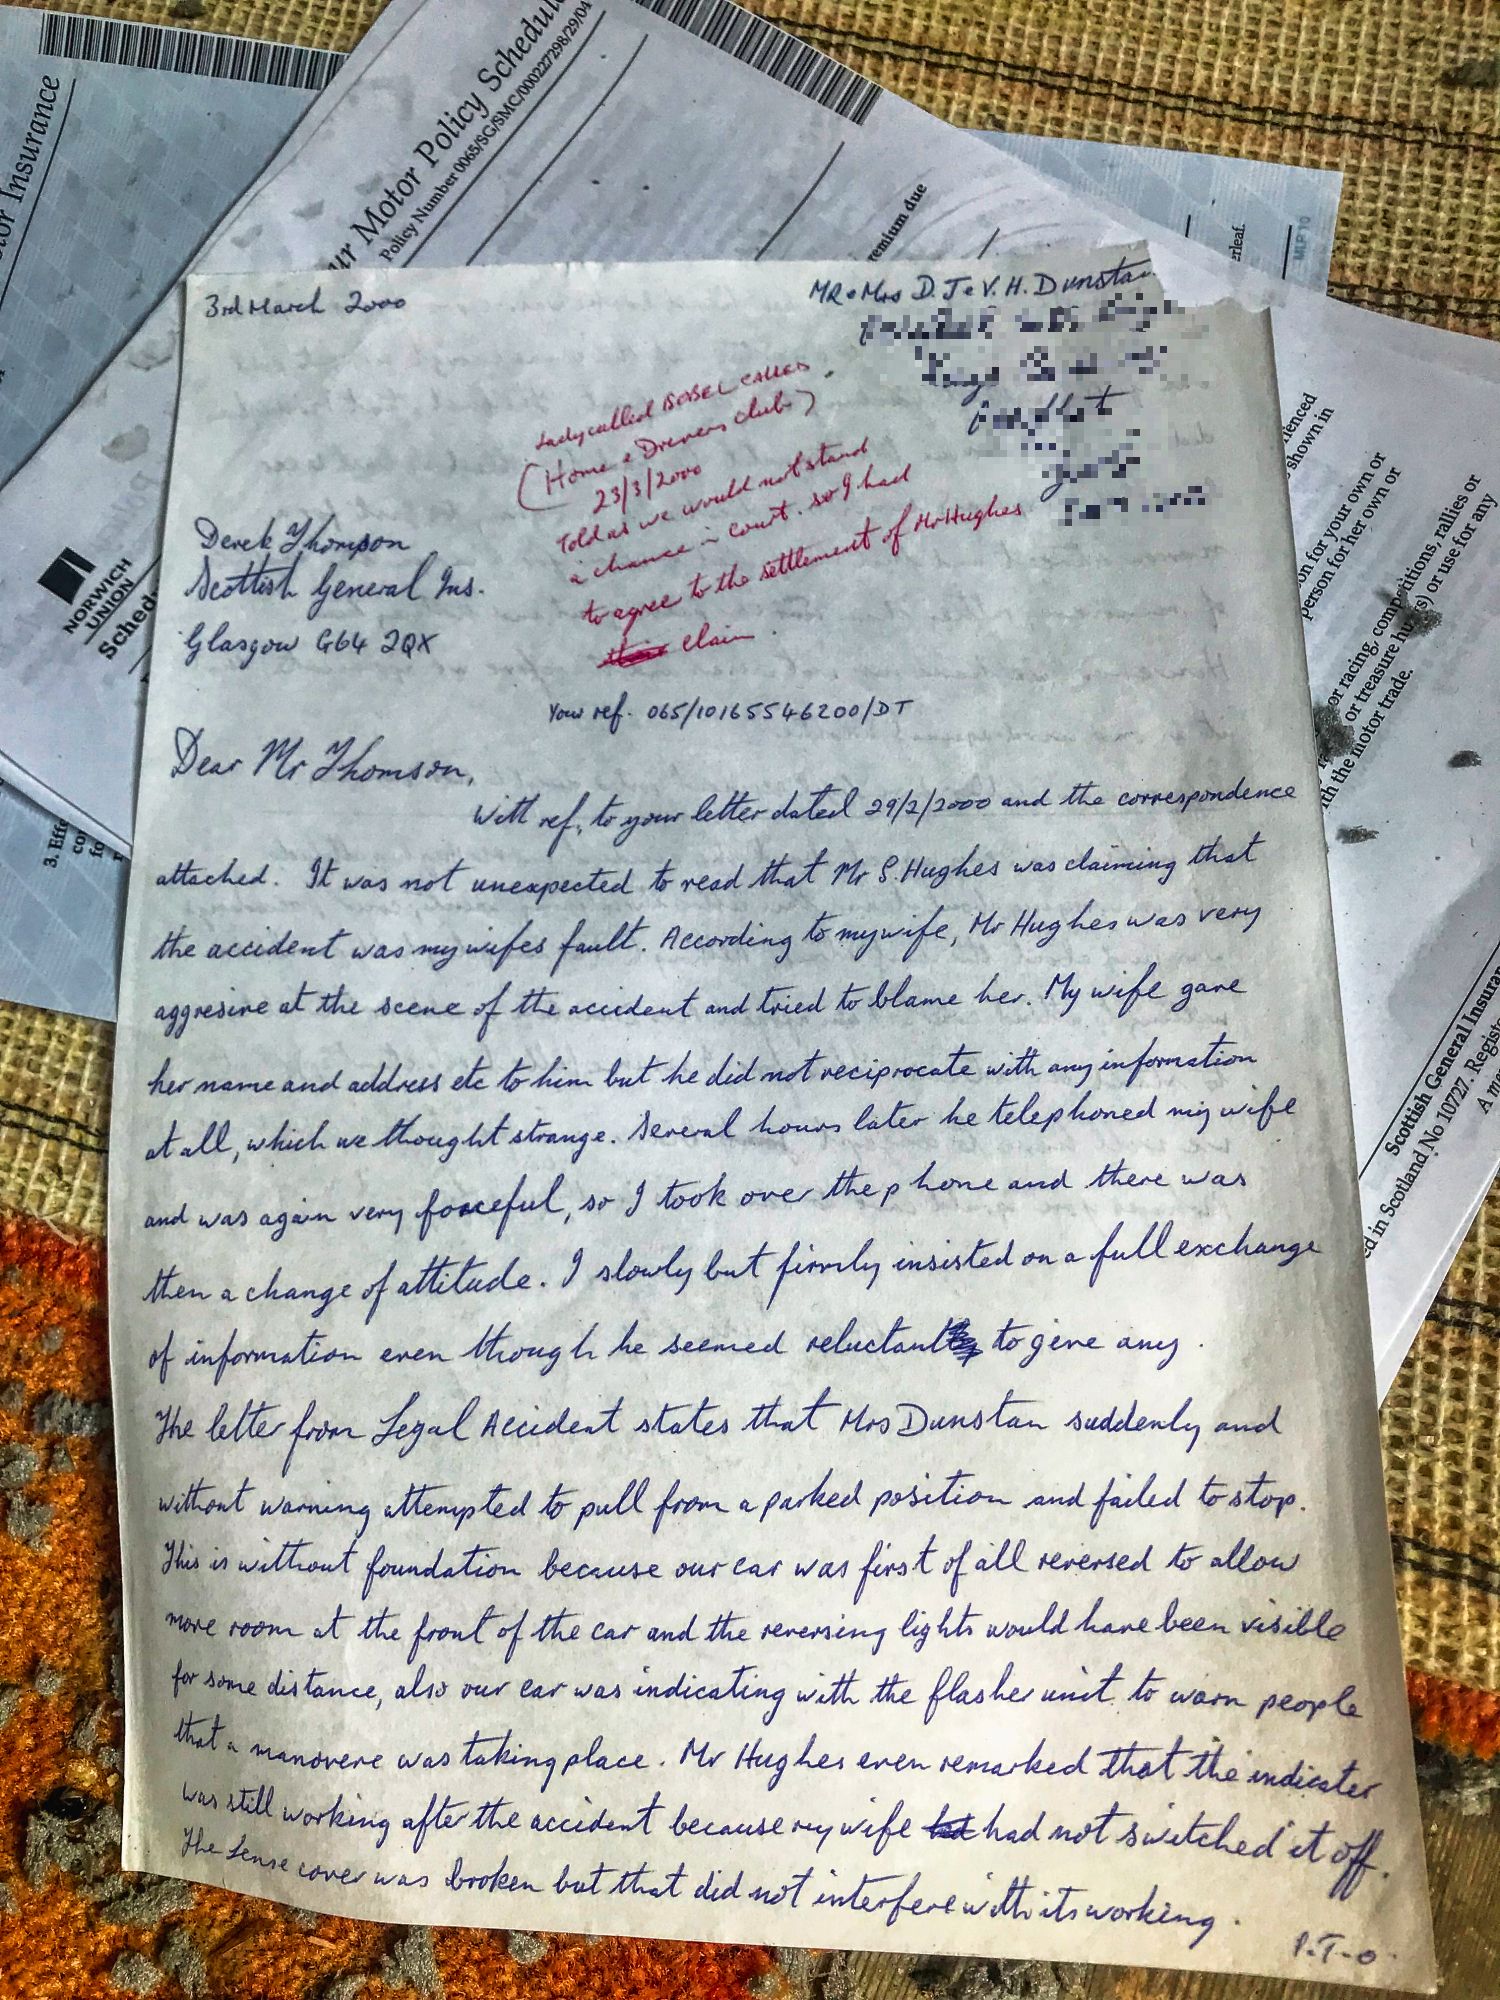 3rd March 2000
MR & Mrs D. J & V. H. Dunstan
Lady called ISOBEL CALLED
(Home & Drivers club)
23/3/2000
Told as we would not stand
a chance in court. so I had
to agree to the settlement of Mr Hughes
claim
Derek Thomson
Scottish General Ins.
Glasgow G64 2QX
Your ref. 065/10165546200/DT
Dear Mr Thomson,
With ref, to your letter dated 29/2/2000 and the correspondence
attached. It was not unexpected to read that Mr S. Hughes was claiming that
the accident was my wifes fault. According to my wife, Mr Hughes was very
aggresive at the scene of the accident and tried to blame her. My wife gave
her name and address etc to him but he did not reciprocate with any information
at all, which we thought strange. Several hours later he telephoned my wife
and was again very forceful, so I took over the phone and there was
then a change of attitude. I slowly but firmly insisted on a full exchange
of information even though he seemed reluctant to give any.
The letter from Legal Accident states that Mrs Dunstan suddenly and
without warning attempted to pull from a parked position and failed to stop.
This is without foundation because our car was first of all reversed to allow
more room at the front of the car and the reversing lights would have been visible
for some distance, also our car was indicating with the flasher unit to warn people
that a manovere was taking place. Mr Hughes even remarked that the indicater
was still working after the accident because my wife had not switched it off.
The lense cover was broken but that did not interfere with its working.
P.T.O.
tor Insurance
ur Motor Policy Schedul
Policy Number 0065/SG/SMC/000227298/29/04
remium due
erleaf.
MLP10
NORWICH
UNION
Sched
3. Effe
co
fo
ienced
s shown in
on for your own or
person for her own or
or racing, competitions, rallies or
or treasure hu s) or use for any
ith the motor trade.
Scottish General Insuran
ed in Scotland No 10727. Registe
A me